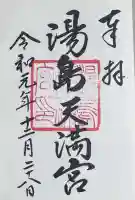 奉拝
湯島天満宮
令和元年十二月二十八日